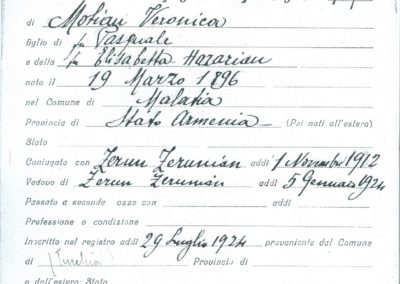 di Motian Veronica
figlio di fu Pasquale
e della fu Elisabetta Hazarian
nato il 19 Marzo 1896
nel Comune di Malatia
Provincia di Stato Armenia (Pei nati all'estero)
Stato
Coniugato con Zerun Zerunian addì 1 Novembre 1912
Vedovo di Zerun Zerunian addì 5 Gennaio 1924
Passato a seconde nozze con addì
Professione o condizione
Inscritto nel registro addì 29 Luglio 1924 proveniente dal Comune
di (Turchia) Provincia di
o dall'estero: Stato